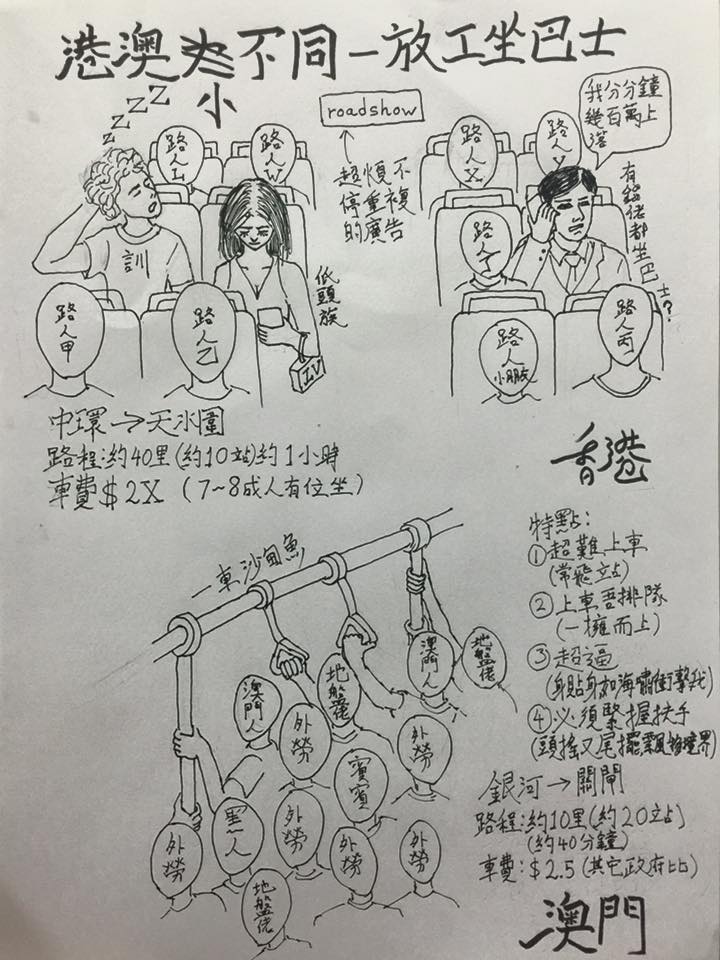 港澳不同—放工坐巴士
小
zzzz
roadshow
超煩不
停重複
的廣告
我分分鐘
幾百萬上
落
有錢佬都坐巴士?
路人L
路人W
路人X
路人Y
訓
低頭族
LV
路人丁
路人甲
路人乙
路人小朋友
路人丙
中環→天水圍
路程:約40里(約10站)約1小時
車費$2X (7~8成人有位坐)
香港
一車沙甸魚
澳門人
地盤佬
澳門人
地盤佬
外勞
外勞
賓賓
外勞
黑人
外勞
外勞
外勞
地盤佬
特點:
①超難上車
(常飛站)
②上車吾排隊
(一擁而上)
③超逼
(身貼身如海嘯衝擊我)
④必須緊握扶手
(頭搖又尾擺境界)
銀河→關閘
路程:約10里(約20站)
(約40分鐘)
車費:$2.5(其它政府比)
澳門